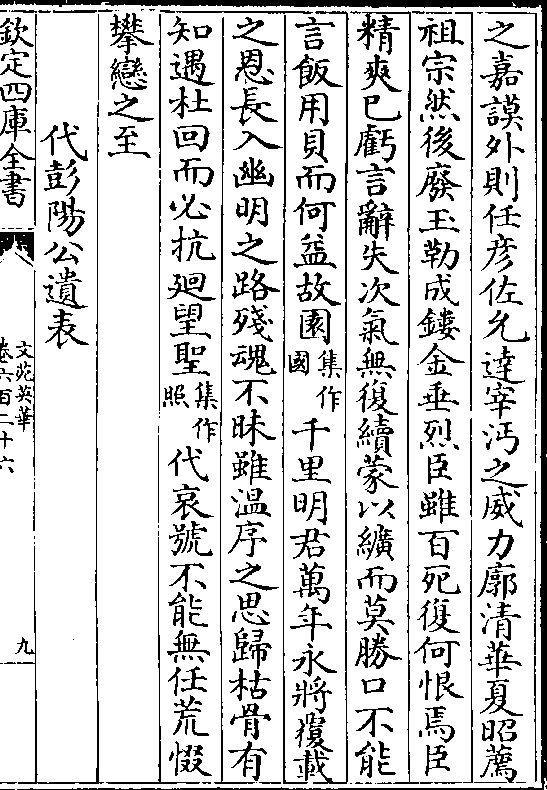 之嘉謨外則任彦佐允逹宰沔之威力廓清華夏昭薦
祖宗然後廢玉勒成鏤金垂烈臣雖百死復何恨焉臣
精爽已虧言辭失次氣無復續蒙以纊而莫勝口不能
言飯用貝而何益故園集作國千里明君萬年永將覆載
之恩長入幽明之路殘魂不昧雖温序之思歸枯骨有
知遇杜回而必抗廻望聖集作照代哀號不能無任荒惙
攀戀之至
代彭陽公遺表
欽定四庫全書
文苑英華
卷六百二十六
九